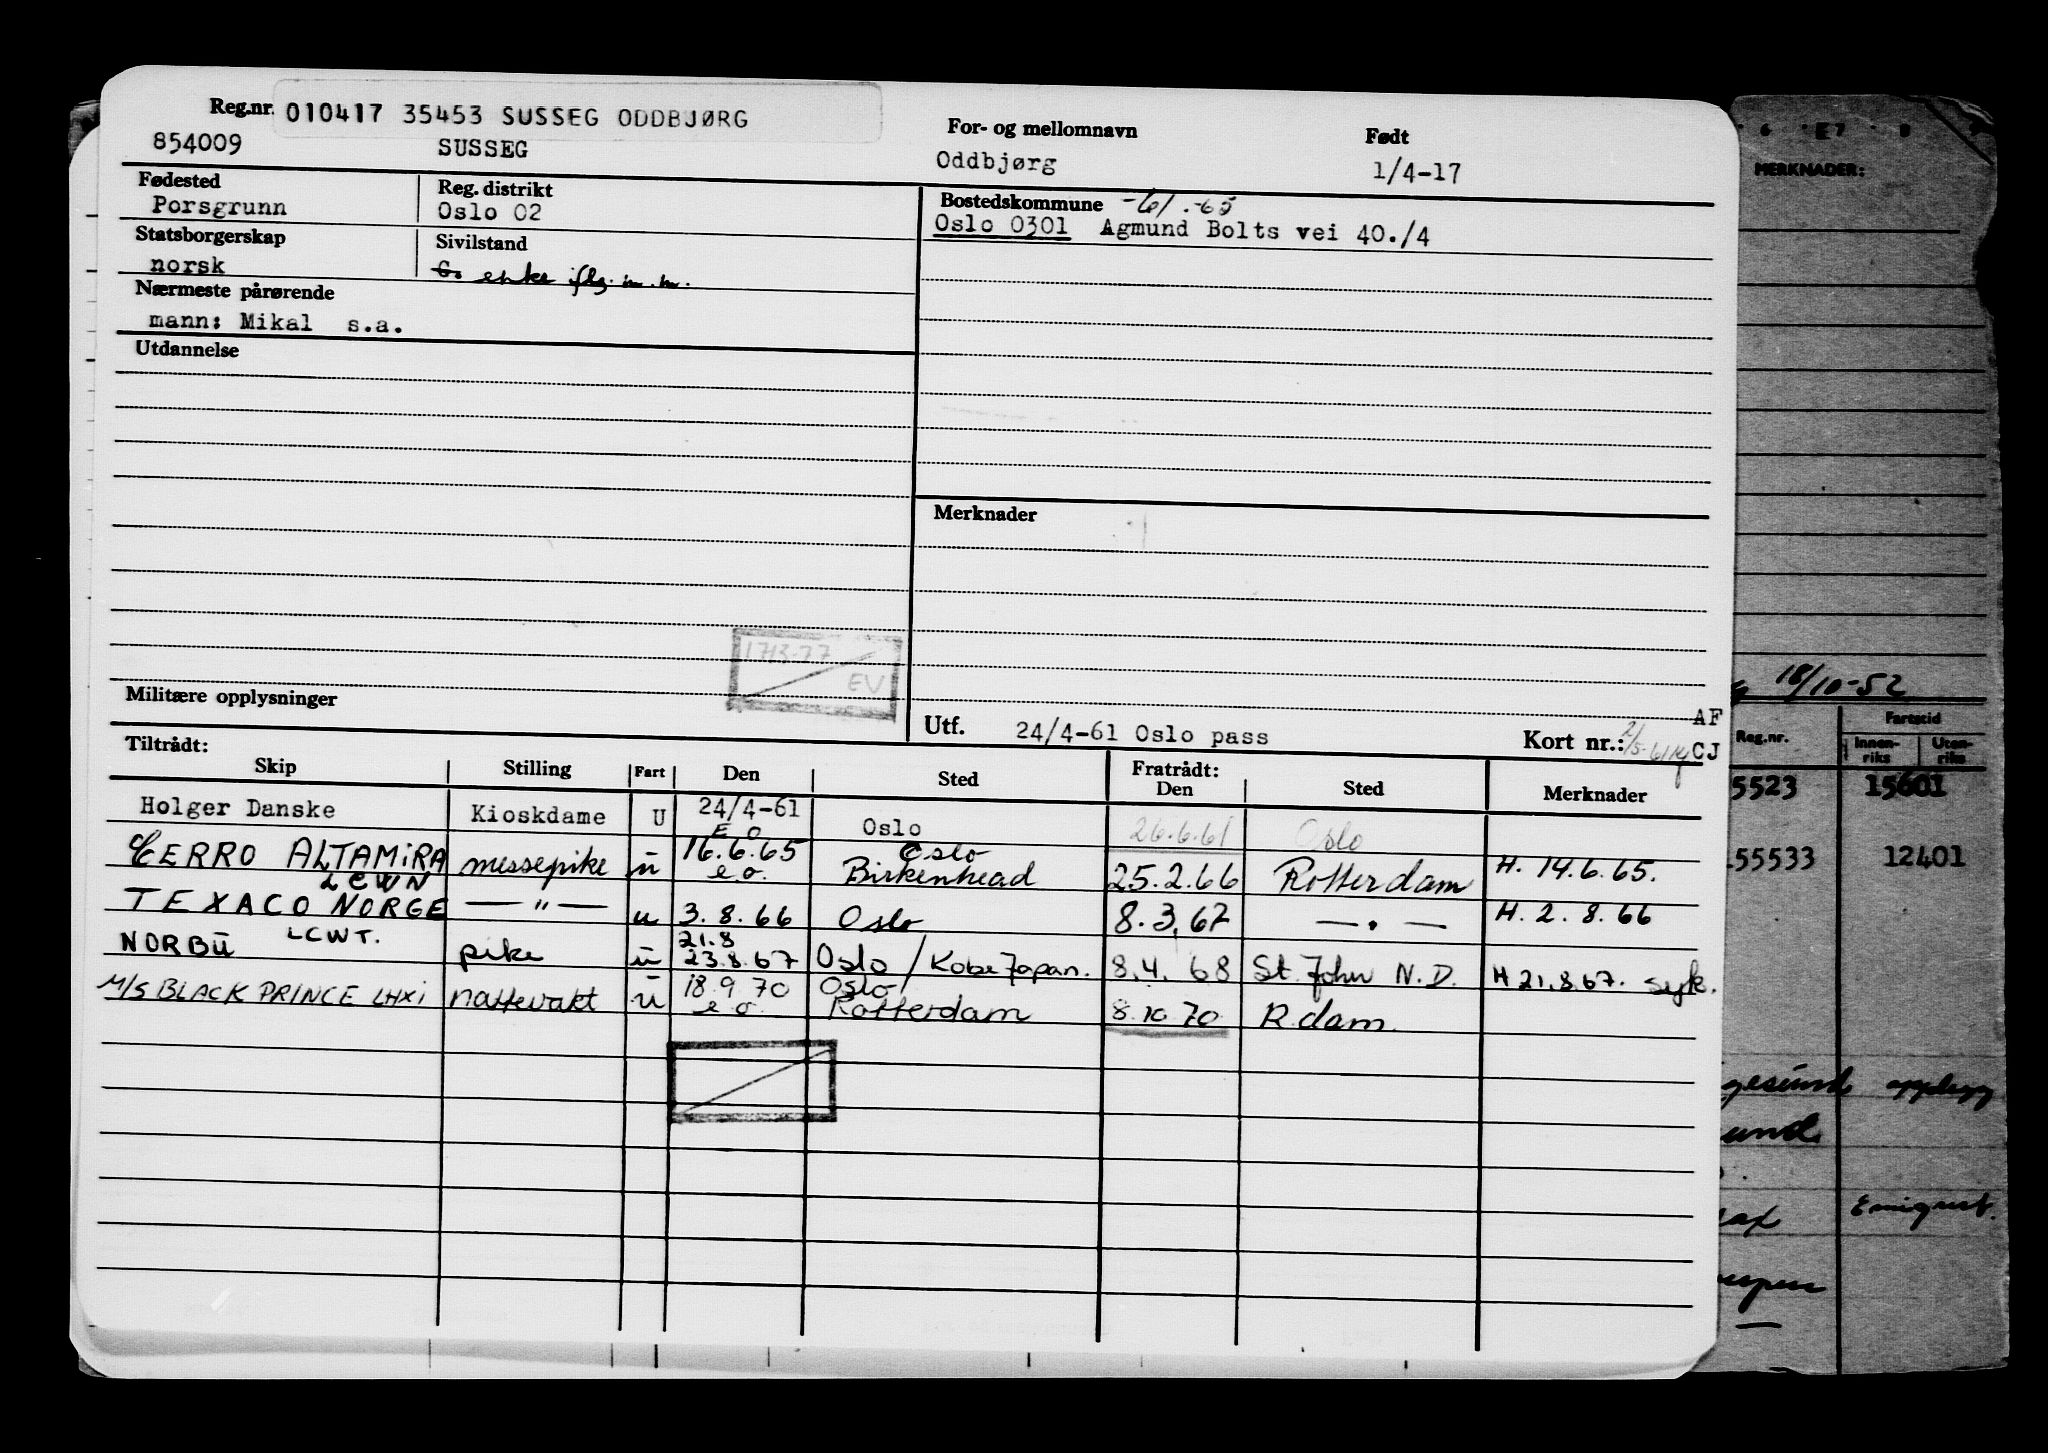 Reg.nr. 010417 35453 SUSSEG ODDBJØRG
854009 SUSSEG
For- og mellomnavn Født
Oddbjørg 1/4-17
Fødested Reg. distrikt
Porsgrunn Oslo 02
Statsborgerskap Sivilstand
norsk G. enke iflg. m.m.
Nærmeste pårørende
mann: Mikal s.a.
Utdannelse
Bostedskommune -61.-65
Oslo 0301 Agmund Bolts vei 40./4
Merknader
1713-77
EV
Militære opplysninger
Utf. 24/4-61 Oslo pass Kort nr.: AF
CJ
Tiltrådt: Fratrådt:
Skip Stilling Fart Den Sted Den Sted Merknader
Holger Danske Kioskdame U 24/4-61 Oslo 26.6.61 Oslo
E O
CERRO ALTAMIRA messepike u 16.6.65 Oslo
LCWN e.o. Birkenhead 25.2.66 Rotterdam H. 14.6.65.
TEXACO NORGE — " — u 3.8.66 Oslo 8.3.67 — " — H. 2.8.66
LCWT. 21.8
NORBU pike u 23.8.67 Oslo / Kobe Japan. 8.4.68 St. John N.D. H 21.8.67. syk.
M/S BLACK PRINCE LHXI nattevakt u 18.9 70 Oslo
e.o. Rotterdam 8.10 70 R.dam
6 E7 8
MERKNADER:
18/10-52
Reg.nr. Fartstid
Innen-riks Uten-riks
5523 15601
55533 12401
gesund opplegg
und
Emigrert.